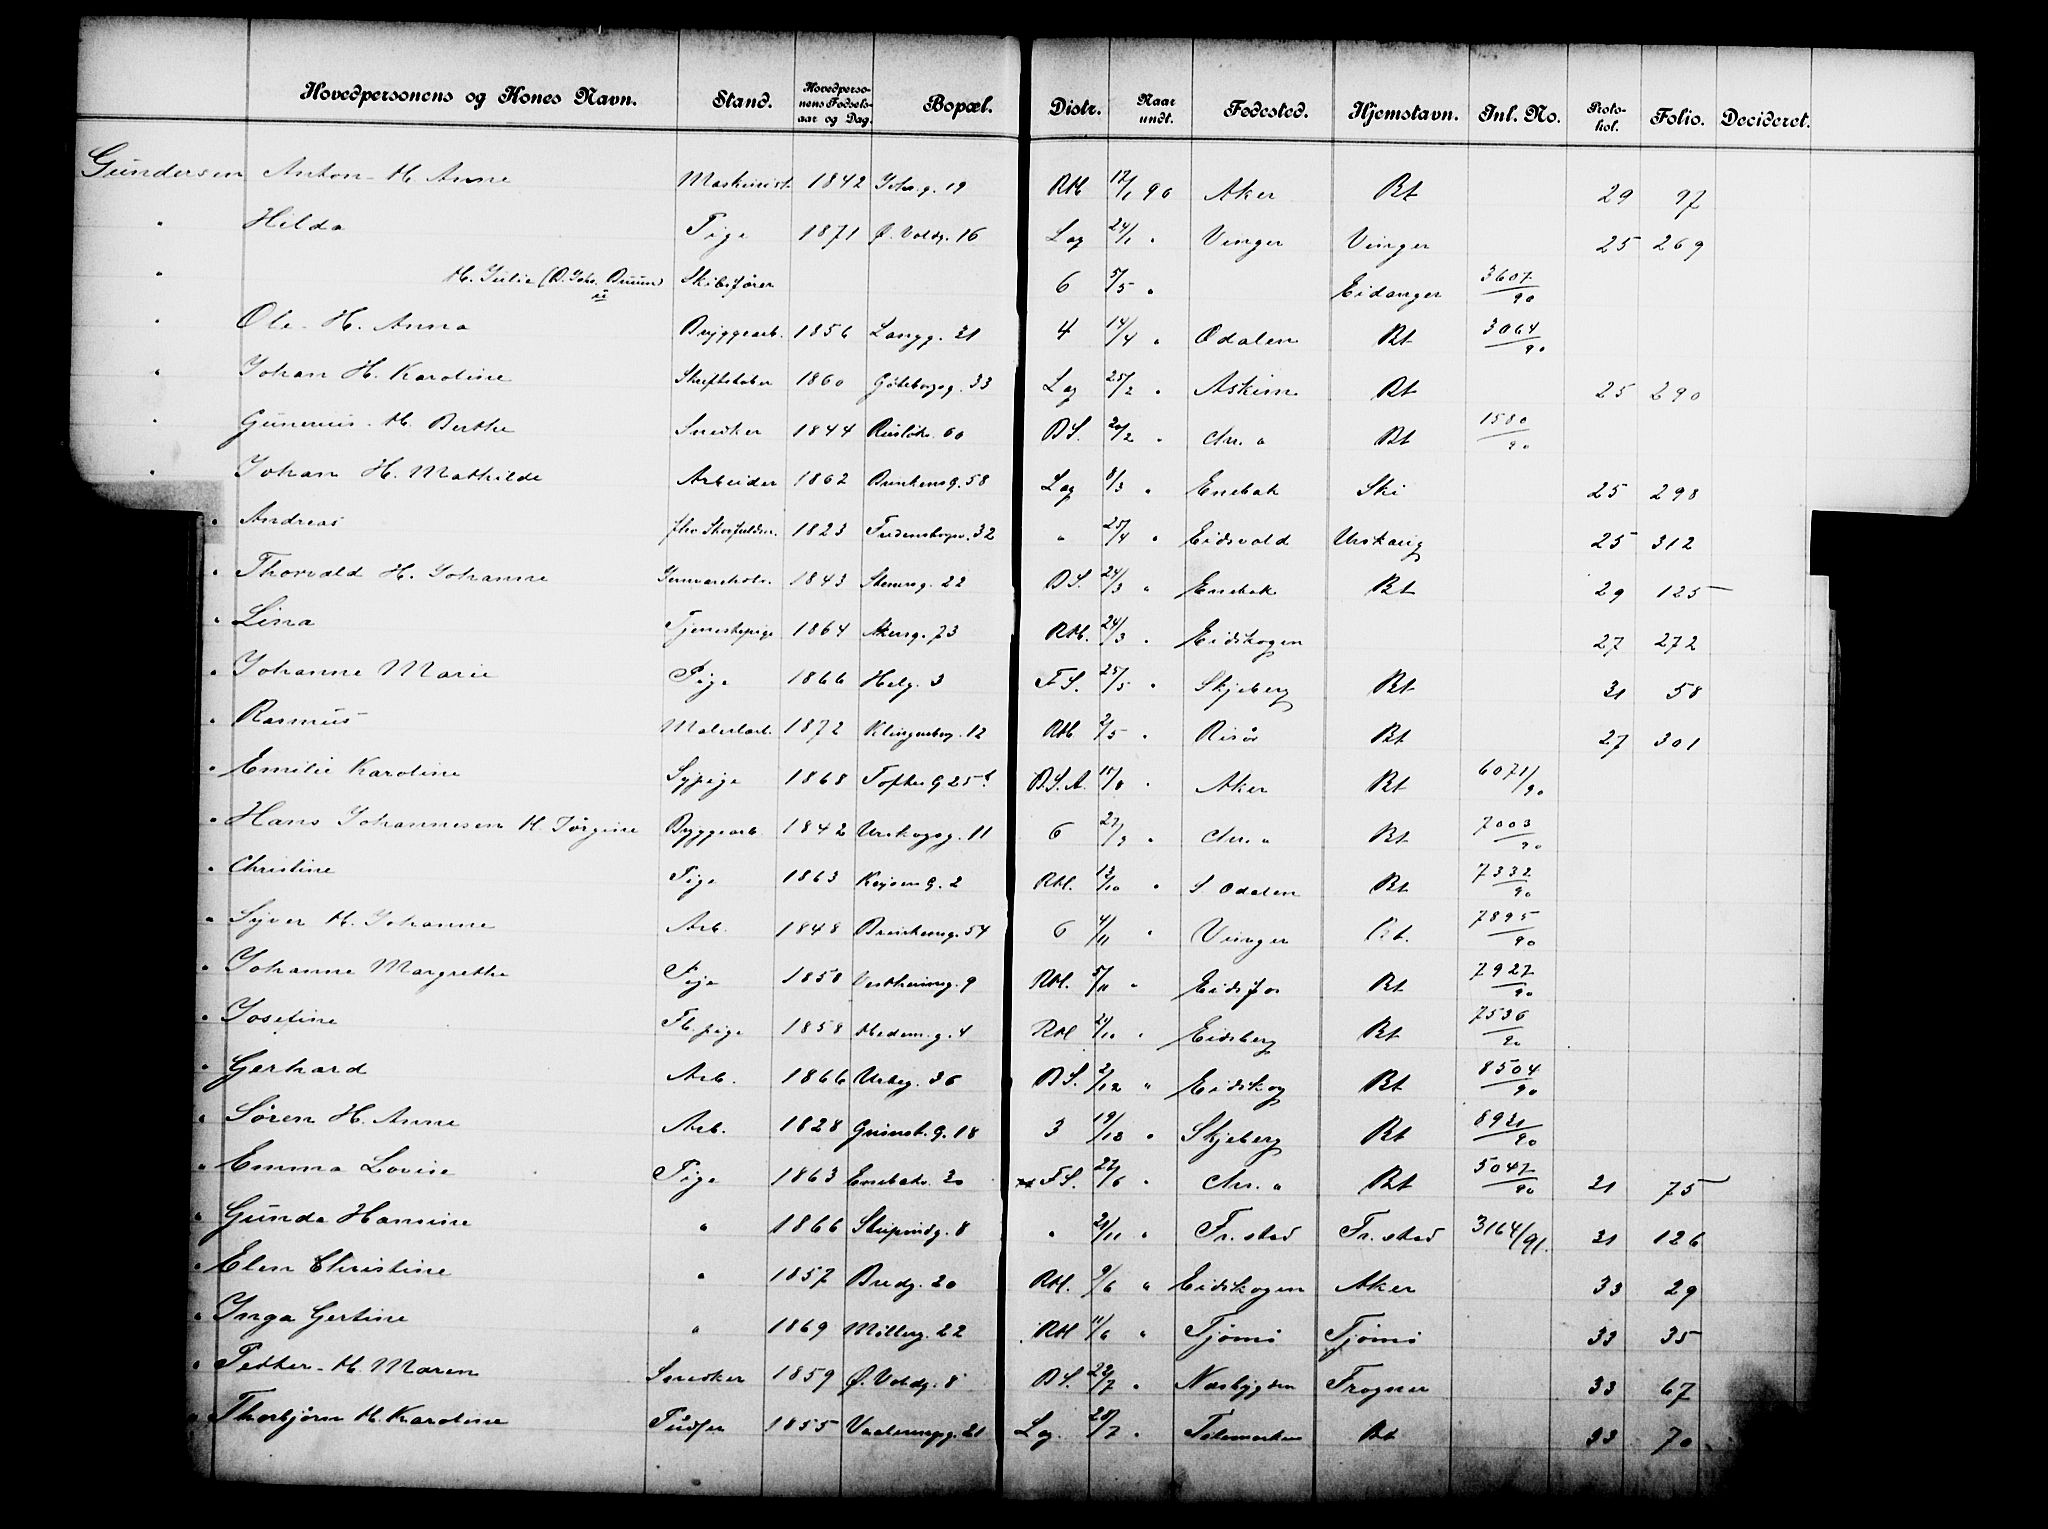 Hovedpersonens og Kones Navn. Stand. Hovedpersonens Fødselsaar og Dag. Bopæl. Distr. Naar undt. Fødested. Hjemstavn. Inl. No. Protokol. Folio. Decideret.
Gundersen Anton - H. Anne Maskinist 1842 19 RM 90 Aker Bt 29 97
" Hilda Pige 1871 Ø. Voldg. 16 Lag 24/1 " Vinger Vinger 25 269
" H. Julie Skibsfører 6 5/5 " Eidanger 3607/90
" Ole - H. Anna Byggearb. 1856 Langg. 21 4 14/4 " Odalen Bt 3064/90
" Johan H. Karoline 1860 Göteborgg. 33 Lag 25/2 " Askim Bt 25 290
" Gunerius - H. Berthe Snedker 1844 60 BS. 20/2 " Chr. a Bt 1580/90
" Johan H. Mathilde Arbeider 1862 58 Lag 8/3 " Enebak Ski 25 298
" Andreas 1823 32 " 25/4 " Eidsvold Urskoug 25 312
" Thorvald H. Johanne 1843 Stensg. 22 BS. 24/3 " Enebak Bt 29 125
" Lina Tjenestepige 1864 Akersg. 73 RM. 24/3 " Eidskogen 27 272
" Johanne Marie Pige 1866 Helg. 3 FS. 25/5 " Skjeberg Bt 31 58
" Rasmus 1872 Klingenberg. 12 RM 2/5 " Risør Bt 27 301
" Emilie Karoline Sypige 1868 Toftes G 25 B.S.A. 15/8 " Aker Bt 6071/90
" Hans Johannesen H. Jørgine Byggearb. 1842 Urskogsg. 11 6 27/9 " Chr. a Bt 7003/90
" Christine Pige 1863 Keysers G. 2 RM. 13/10 " S Odalen Bt 7332/90
" Syver H. Johanne Arb. 1848 54 6 4/11 " Vinger Bt. 7895/90
" Johanne Margrethe Pige 1858 Vestheimsg. 9 RM. 5/11 " Bt 7927/90
" Josefine 1858 4 RM 21/10 " Eidsberg Bt 7536/90
" Gerhard Arb. 1866 Urteg. 36 BS. 2/12 " Eidskog Bt 8504/90
" Søren H. Anne Arb. 1828 Grønst. G. 18 3 19/12 " Skjeberg Bt 8921/90
" Emma Lovise Pige 1863 Enebakv. 20 FS. 27/6 " Chr. a Bt 5047/90 21 75
" Gunda Hansine " 1866 8 " 21/11 " Fr. stad Fr. stad 3164/91. 21 126
" Elen Christine " 1857 Bredg. 20 RM. 9/6 " Eidskogen Aker 33 29
" Inga Gertine " 1869 Møllerg. 22 RM 11/6 " Tjømø Tjømø 33 35
" Pether - H. Maren Snedker 1859 Ø. Voldg. 8 BS. 22/7 " Næsbygden Frogner 33 67
" Thorbjørn H. Karoline Pudser 1855 21 Lag. 28/7 " Telemarken Bt 33 70